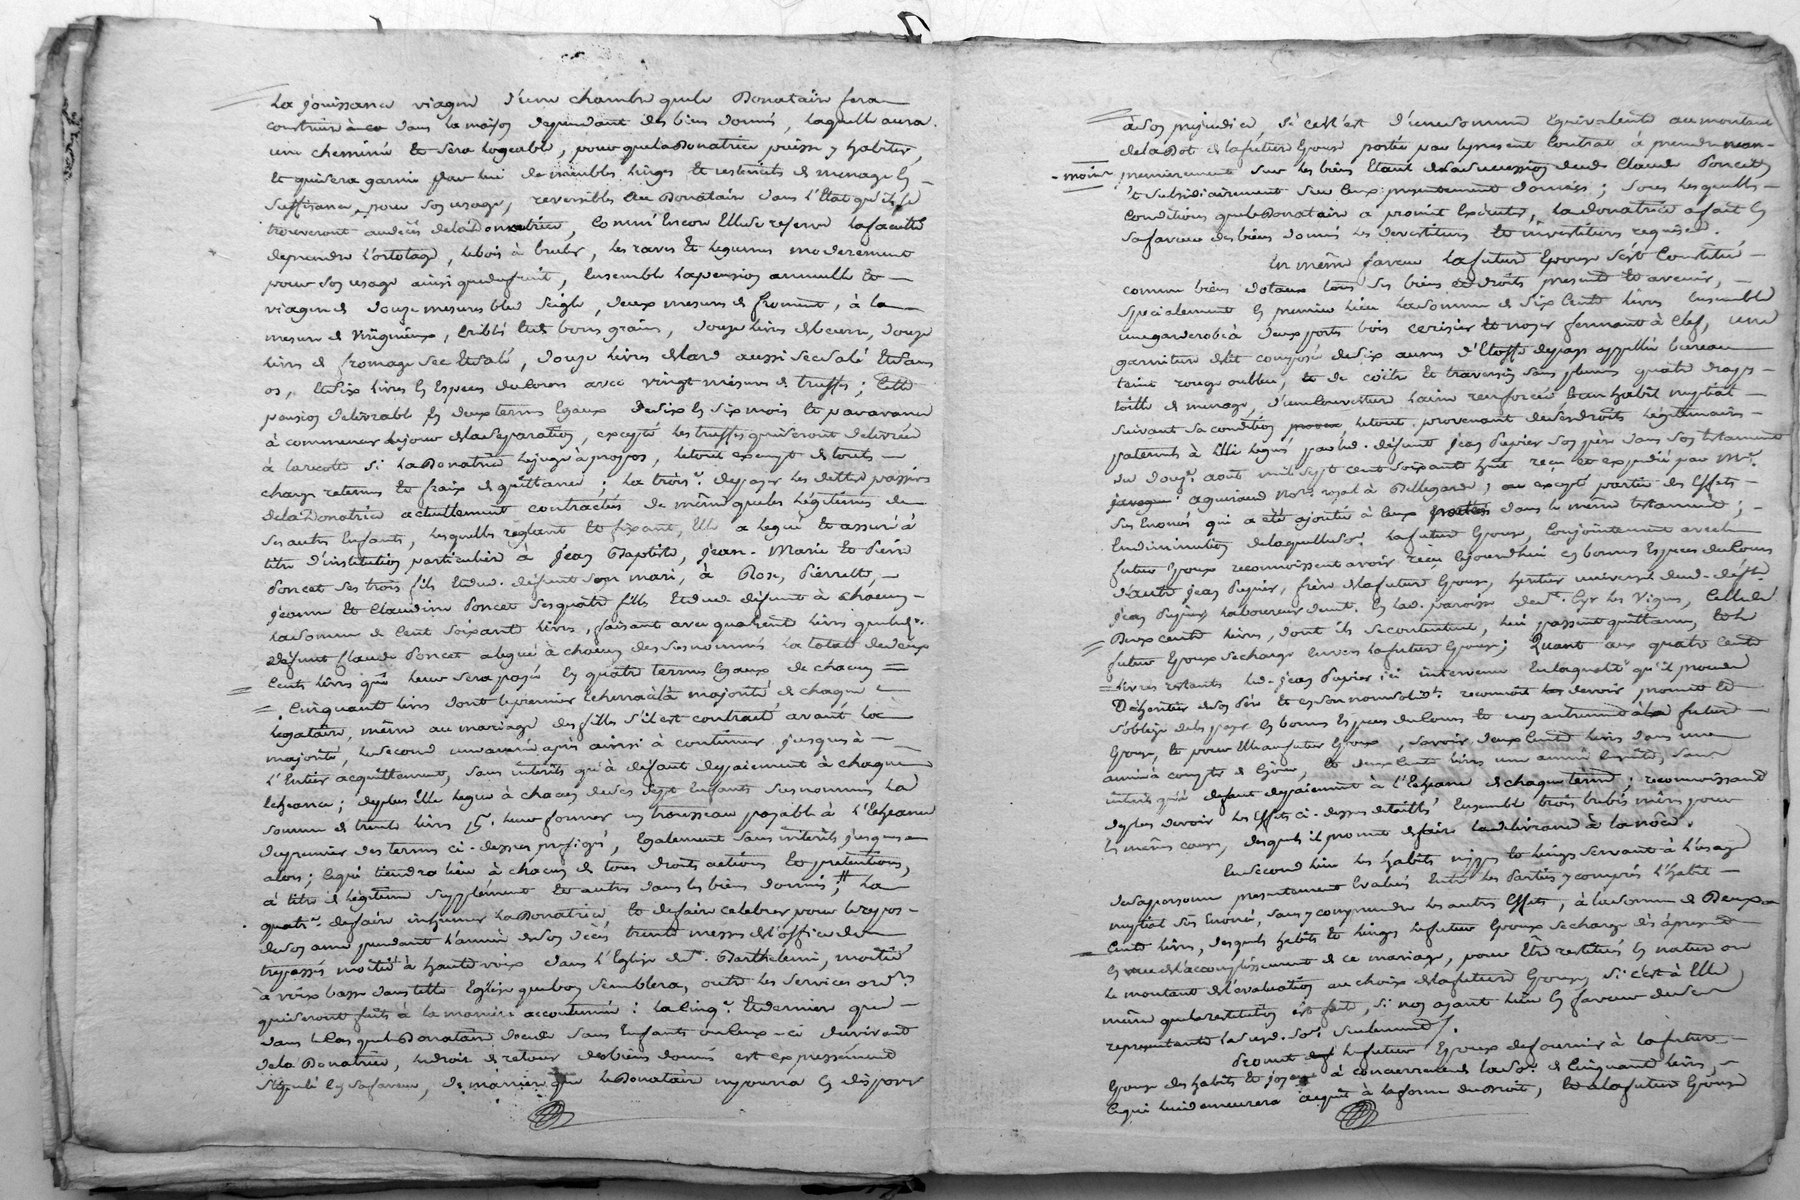 La jouissance viagere d'une chambre que le Donataire fera
construire à ça dans la maison dependant des biens donnés, laquelle aura
une cheminée et sera logeable, pour que la Donatrice puisse y habiter,
et qui sera garnie par lui de meubles linges et ustenciles de menage en
suffisance pour son usage, reversibles au Donataire dans l'Etat qu'ils se
trouveront au décès de la Donatrice, comm'encore Elle se reserve la faculté
de prendre l'ortolage, le bois à bruler, les raves et legumes moderement
pour son usage ainsi que du fruit, Ensemble la pension annuelle et
viagere de douze mesures bled seigle, deux mesures de froment, à la
mesure de Virigneux, criblé et de bons grains, douze livres de beurre, douze
livres de fromage sec et salé, douze livres de lard aussi sec salé et sans
os, et dix livres en Especes du cours avec vingt mesures de truffes; cette
pension delivrable en deux termes Egaux de six en six mois et par avance
à commencer du jour de la separation, excepté les truffes qui seront delivrées
à la recolte si la Donatrice le juge à propos, le tout exempt de toute
charge retenue et fraix de quittance; la trois.e de payer les dettes passives
de la Donatrice actuellement contractées de même que les légitimes de
ses autres Enfants, lesquelles reglant et fixant, Elle a legué et assuré à
titre d'institution particuliere à Jean Baptiste, Jean-Marie et Pierre
Poncet ses trois fils et du d. défunt son mari, à Rose, Pierrette,
Jeanne et Claudine Poncet ses quatre filles et du d. défunt à chacun
la somme de Cent soixante livres, faisant avec quarante livres que led.
défunt Claude Poncet a legué à chacun des susnommés la totale de deux
Cents livres qui leur sera payée en quatre termes Egaux de chacun
Cinquante livres dont le premier Echerra à la majorité de chaque
legataire, même au mariage des filles s'il est contracté avant la
majorité, le second une année après ainsi à continuer jusques à
l'Entier acquittement, sans interets qu'à défaut de paiement à chaque
Echeance; de plus Elle legue à chacun de ses sept Enfants susnommés la
somme de trente livres pr. leur former un trousseau payable à l'Echeance
du premier des termes ci-dessus prefigés, Egalement sans interets jusques
alors; ce qui tiendra lieu à chacun de tous droits actions et pretentions,
à titre de légitime supplément et autres dans les biens donnés; # la
quatr.e de faire inhumer la Donatrice et de faire celebrer pour le repos
de son ame pendant l'année de son décès trente messes de l'office de
trepassés moitié à haute voix dans l'Eglise de St. Barthelemi, moitié
à voix basse dans telle Eglise que bon semblera, outre les services ord.res
qui seront faits à la maniere accoutumée: la cinq.e et derniere que
dans le cas que le Donataire decede sans Enfants ou ceux-ci du vivant
de la Donatrice, le droit de retour des biens donnés est expressément
stipulé en sa faveur, de maniere que le Donataire ne pourra en disposer
à son prejudice, si ce n'est d'une somme Equivalente au montant
de la Dot de la future Epouse portée par le present Contrat à prendre nean-
-moins premierement sur les biens Etant de la succession dud. Claude Poncet
et subsidiairement sur ceux presentement donnés; sous lesquelles
Conditions que le Donataire a promit Executer, la donatrice a fait en
sa faveur des biens donnés les devestitures et investitures requises.
En même faveur la future Epouse s'est Constitué
comme biens dotaux tous ses biens et droits presents et avenir,
specialement en premier lieu la somme de Six Cents livres Ensemble
une garderobe à deux portes bois cerisier et noyer fermant à Clef, une
garniture de lit composée de six aunes d'Etoffe de pays appellée bureau
teint rouge ou bleu, et de coitre et traversin sans plumes quatre draps
toille de menage, d'une couverture laine renforcée et un habit nuptial
suivant sa condition le tout provenant de ses droits legitimaires
paternels à Elle legués par led. défunt Jean Pupier son père dans son testament
du douz.e août mil sept cent soixante huit reçu et expedié par Me.
aguiraud not.re royal à Bellegarde, au except partie des Effets
sus Enoncés qui a été ajoutée à ceux dans le même testament;
En diminution de laquelle so.e la future Epouse, conjointement avec le
futur Epoux reconnoissent avoir reçu cejourd'hui en bonnes Especes du Cours
d'autre Jean Pupier, frère de la future Epouse, heritier universel dud. déft.
Jean Pupier laboureur demt. en lad. paroisse de St. Cyr les Vignes, celle de
Deux cents livres, dont ils se contentent, lui passent quittance, et le
futur Epoux se charge Envers la future Epouse; Quant aux quatre cents
livres restants led. Jean Pupier ici intervenu En la qualité qu'il procede
D'heritier de son Père et en son nom solid.t reconnoit les devoir promet et
s'oblige de les payer en bonnes Especes du Cours et non autrement à la future
Epouse, et pour Elle au futur Epoux, savoir deux cents livres dans une
année à compter de ce jour, et deux cents livres une année ensuite, sans
interets qu'à défaut de paiement à l'Echeance de chaque terme; reconnoissant
de plus devoir les Effets ci-dessus detaillés Ensemble trois brebis mères pour
le même cours, desquels il promet de faire la delivrance à la nôce.
En second lieu les habits nippes et linges servant à l'usage
de sa personne presentement Evalués Entre les Parties y compris l'habit
nuptial sus Enoncé, sans y comprendre les autres Effets, à la somme de Deux
Cents livres, desquels habits et linges le futur Epoux se charge dès à present
en vue de l'accomplissement de ce mariage, pour être restitués en nature ou
le montant de l'évaluation au choix de la future Epouse, si c'est à Elle
même que la restitution est faite, si non ayant lieu en faveur de ses
representants lad. so.e seulement.
Promet le futur Epoux de fournir à la future
Epouse des habits et joyaux à concurrence de la so.e de Cinquante livres
ce qui lui demeurera acquis à la forme du Droit, et à la future Epouse